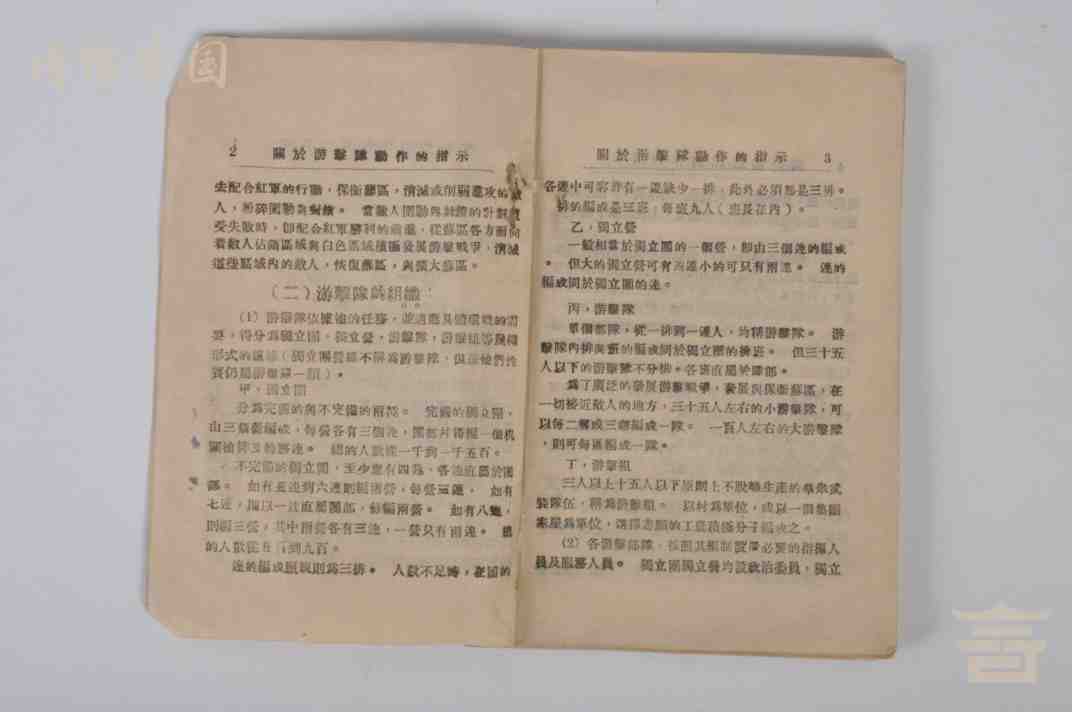 2 關於游擊隊動作的指示
去配合紅軍的行動，保衛蘇區，消滅或削弱進攻的敵
人，粉碎圍勦與封鎖。 當敵人圍勦與封鎖的計劃遭
受失敗時，即配合紅軍勝利的前進，從蘇區各方面向
着敵人佔領區域與白色區域積極發展游擊戰爭，消滅
這些區域內的敵人，恢復蘇區，與擴大蘇區。
（二）游擊隊的組織
(1) 游擊隊依據他的任務，並適應具體環境的需
要，得分為獨立團，獨立營，游擊隊，游擊組等幾種
形式的組織（獨立團營雖不稱為游擊隊，但是他們性
質仍屬游擊隊一類）。
甲，獨立團
分為完備的與不完備的兩種。 完備的獨立團，
由三個營編成，每營各有三個連，團部得編一個機
關槍排及特務連。 總的人數從一千到一千五百。
不完備的獨立團，至少應有四連，各連直屬於團
部。 如有五連到六連則編兩營，每營三連， 如有
七連，抽以一連直屬團部，餘編兩營。 如有八連，
則編三營，其中兩營各有三連，一營只有兩連。 總
的人數從五百到九百。
連的編成原則為三排。 人數不足時，在團的
關於游擊隊動作的指示 3
各連中可容許有一連缺少一排，此外必須都是三排。
排的編成是三班，每班九人（班長在內）。
乙，獨立營
一般相當於獨立團的一個營，即由三個連的編成
。 但大的獨立營可有四連小的可只有兩連。 連的
編成同於獨立團的連。
丙，游擊隊
單個部隊，從一排到一連人，均稱游擊隊。 游
擊隊內排與班的編成同於獨立團的排班。 但三十五
人以下的游擊隊不分排。各班直屬於隊部。
為了廣泛的發展游擊戰爭，發展與保衛蘇區，在
一切接近敵人的地方，三十五人左右的小游擊隊，可
以每二鄉或三鄉編成一隊。 一百人左右的大游擊隊
，則可每區編成一隊。
丁，游擊組
三人以上十五人以下原則上不脫離生產的羣衆武
裝隊伍，稱為游擊組。 以村為單位，或以一個集團
家屋為單位，選擇志願的工農積極分子編成之。
(2) 各游擊部隊，按照其編制設置必要的指揮人
員及服務人員。 獨立團獨立營均設政治委員，獨立